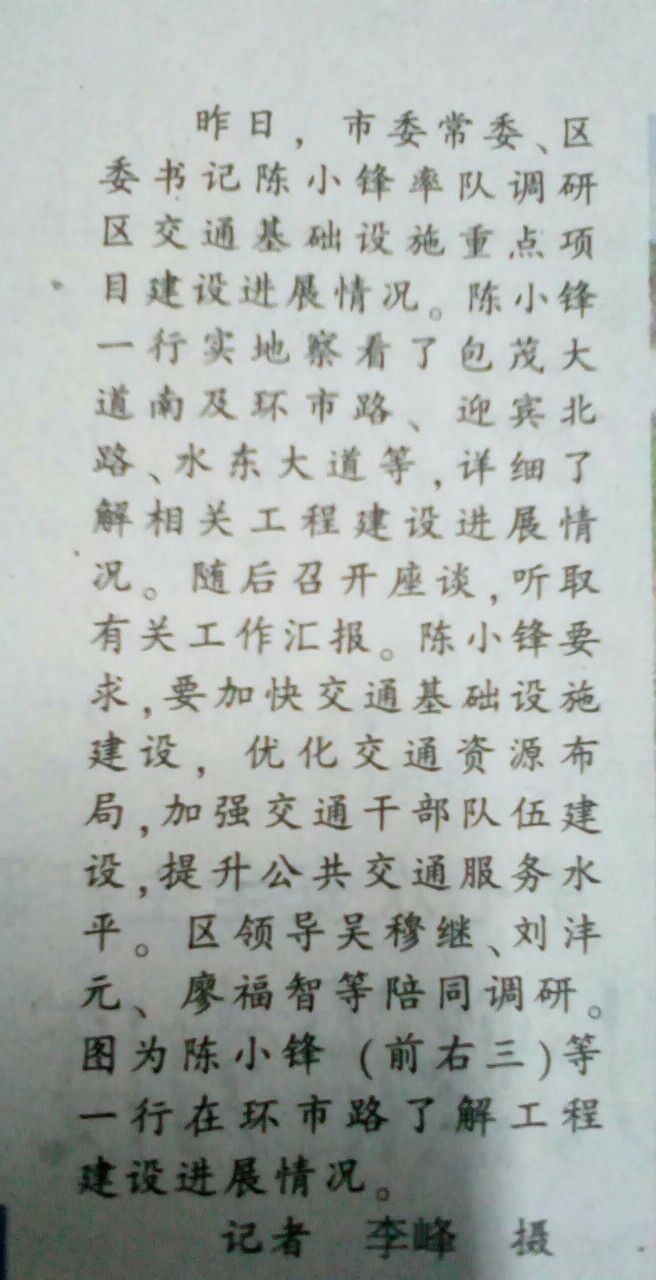 昨日，市委常委、区
委书记陈小锋率队调研
区交通基础设施重点项
目建设进展情况。陈小锋
一行实地察看了包茂大
道南及环市路、迎宾北
路、水东大道等，详细了
解相关工程建设进展情
况。随后召开座谈，听取
有关工作汇报。陈小锋要
求，要加快交通基础设施
建设，优化交通资源布
局，加强交通干部队伍建
设，提升公共交通服务水
平。区领导吴穆继、刘沣
元、廖福智等陪同调研。
图为陈小锋（前右三）等
一行在环市路了解工程
建设进展情况。
记者 李峰 摄